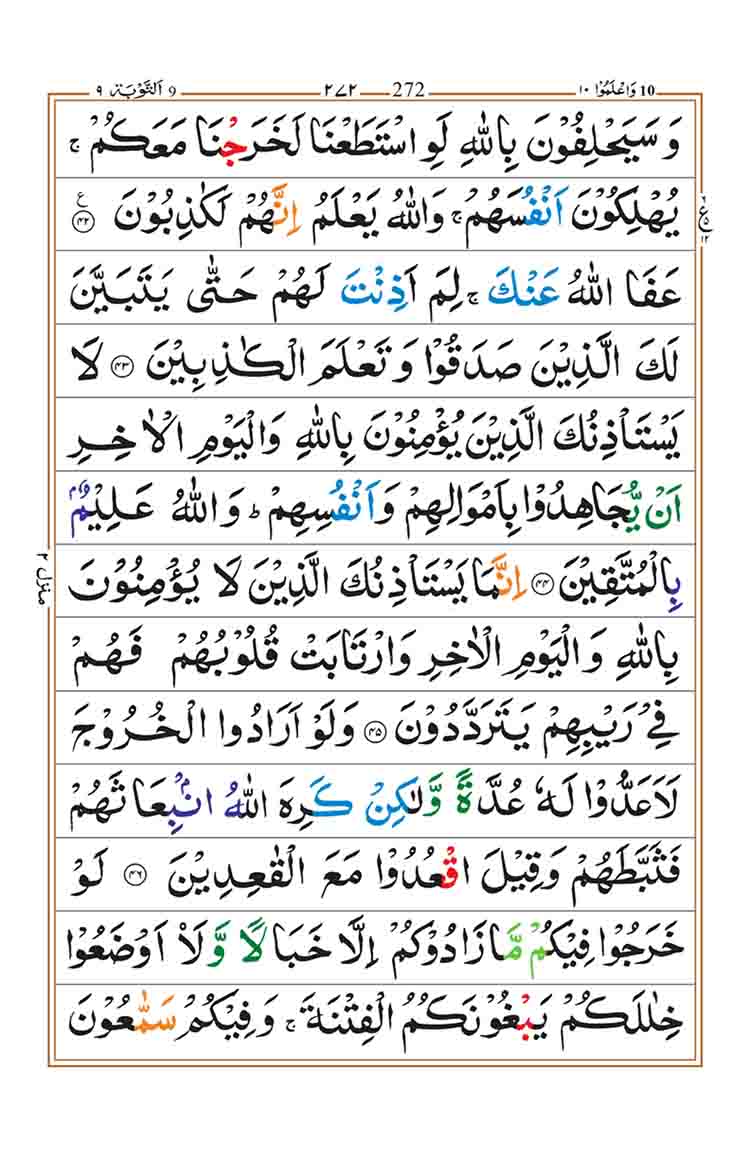 10 وَاعْلَمُوْۤا ١٠ 272 ٢٧٢ 9 اَلتَّوْبَة ٩
وَ سَيَحْلِفُوْنَ بِاللّٰهِ لَوِ اسْتَطَعْنَا لَخَرَجْنَا مَعَكُمْ ۚ
يُهْلِكُوْنَ اَنْفُسَهُمْ ۚ وَاللّٰهُ يَعْلَمُ اِنَّهُمْ لَكٰذِبُوْنَ ۝٤٢ ع
عَفَا اللّٰهُ عَنْكَ ۚ لِمَ اَذِنْتَ لَهُمْ حَتّٰى يَتَبَيَّنَ
لَكَ الَّذِيْنَ صَدَقُوْا وَ تَعْلَمَ الْكٰذِبِيْنَ ۝٤٣ لَا
يَسْتَاْذِنُكَ الَّذِيْنَ يُؤْمِنُوْنَ بِاللّٰهِ وَالْيَوْمِ الْاٰخِرِ
اَنْ يُّجَاهِدُوْا بِاَمْوَالِهِمْ وَاَنْفُسِهِمْ ؕ وَ اللّٰهُ عَلِيْمٌۢ
بِالْمُتَّقِيْنَ ۝٤٤ اِنَّمَا يَسْتَاْذِنُكَ الَّذِيْنَ لَا يُؤْمِنُوْنَ
بِاللّٰهِ وَ الْيَوْمِ الْاٰخِرِ وَارْتَابَتْ قُلُوْبُهُمْ فَهُمْ
فِيْ رَيْبِهِمْ يَتَرَدَّدُوْنَ ۝٤٥ وَلَوْ اَرَادُوا الْخُرُوْجَ
لَاَعَدُّوْا لَهٗ عُدَّةً وَّلٰكِنْ كَرِهَ اللّٰهُ انْۢبِعَاثَهُمْ
فَثَبَّطَهُمْ وَقِيْلَ اقْعُدُوْا مَعَ الْقٰعِدِيْنَ ۝٤٦ لَوْ
خَرَجُوْا فِيْكُمْ مَّا زَادُوْكُمْ اِلَّا خَبَالًا وَّ لَا۠اَوْضَعُوْا
خِلٰلَكُمْ يَبْغُوْنَكُمُ الْفِتْنَةَ ۚ وَ فِيْكُمْ سَمّٰعُوْنَ
منزل ٢